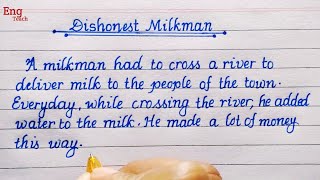 Eng
Teach
Dishonest Milkman
A milkman had to cross a river to
deliver milk to the people of the town.
Everyday, while crossing the river, he added
water to the milk. He made a lot of money
this way.